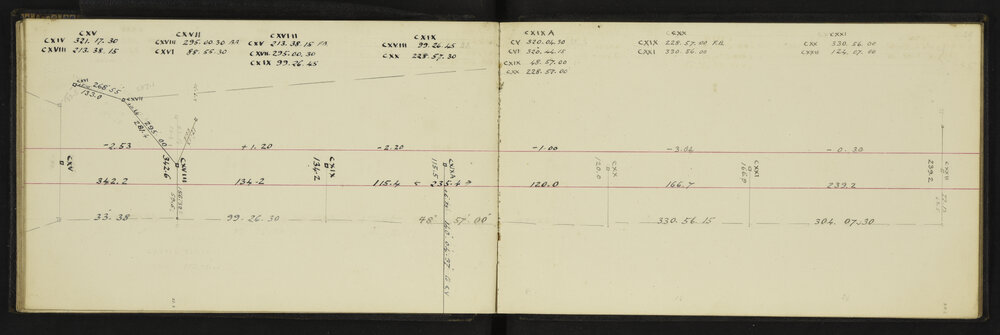 CXV
CXIV 321.17.30
CXVIII 213.38.15
CXVII
CXVIII 295.00.30 BR
CXVI 88.55.30
CXVIII
CXV 213.38.15 FB
CXVII 295.00.30
CXIX 99.26.45
CXIX
CXVIII 99.26.45
CXX 228.57.30
CXIXA
CV 320.04.30
CVI 320.44.15
CXIX 48.57.00
CXX 228.57.00
CXX
CXIX 228.57.00 FB
CXXI 330.56.00
CXXI
CXX 330.56.00
CXXII 124.07.00
CXVI
268.55
133.0
CXVII
295.00
281.4
-2.53
+1.20
-2.20
-1.00
-3.06
-0.30
CXV
342.6
CXVIII
134.2
CXIX
115.5
CXIXA
120.0
CXX
166.0
CXXI
239.2
CXXII
342.2
134.2
115.4
235.4
120.0
166.7
239.2
33.38
99.26.30
48.57.00
330.56.15
304.07.30